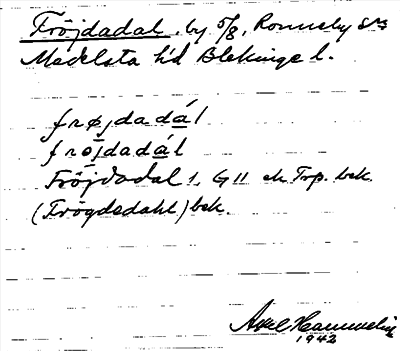 Fröjdadal, by 5/8, Ronneby sns
Medelsta hd Blekinge l.
frøjdadál
frøjdadál
Fröjdadal 1, G 11 ek Trp. bek.
(Frögdedahl) bek.
Axel
1942